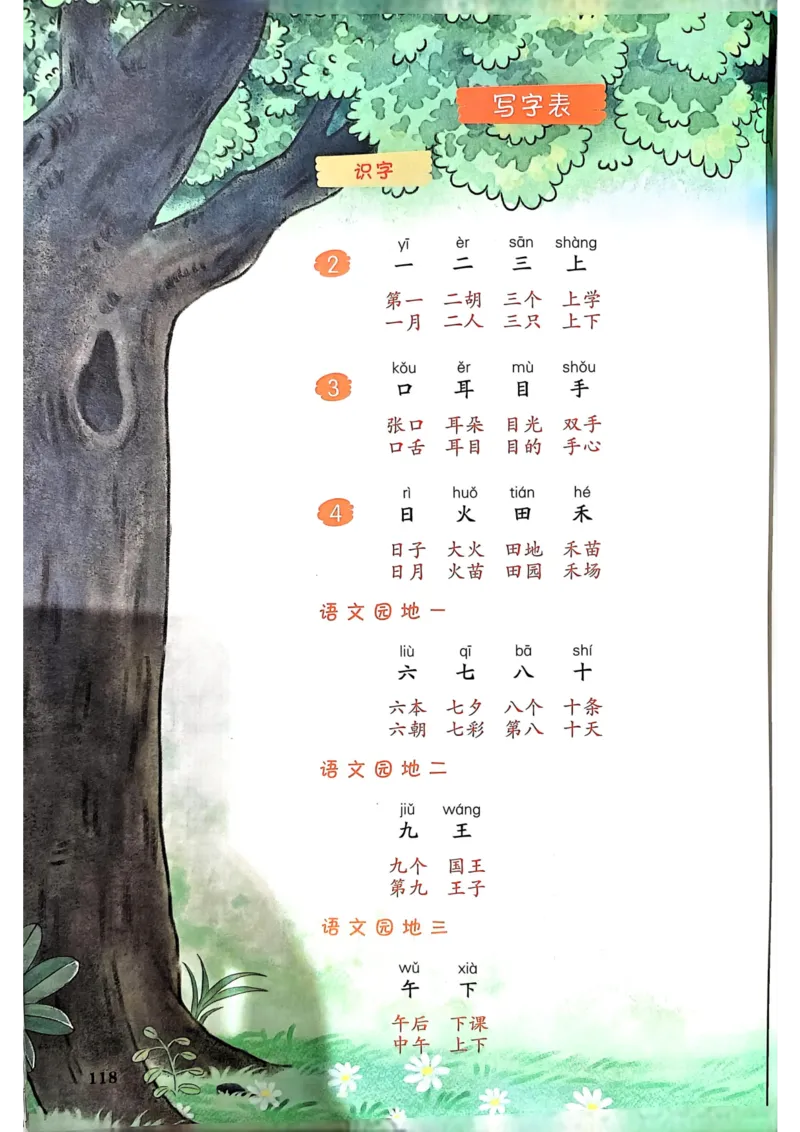 写字表
识字
yī èr sān shàng
2 一 二 三 上
第一 二胡 三个 上学
一月 二人 三只 上下
kǒu ěr mù shǒu
3 口 耳 目 手
张口 耳朵 目光 双手
口舌 耳目 目的 手心
rì huǒ tián hé
4 日 火 田 禾
日子 大火 田地 禾苗
日月 火苗 田园 禾场
语文园地一
liù qī bā shí
六 七 八 十
六本 七夕 八个 十条
六朝 七彩 第八 十天
语文园地二
jiǔ wáng
九 王
九个 国王
第九 王子
语文园地三
wǔ xià
午 下
午后 下课
中午 上下
118